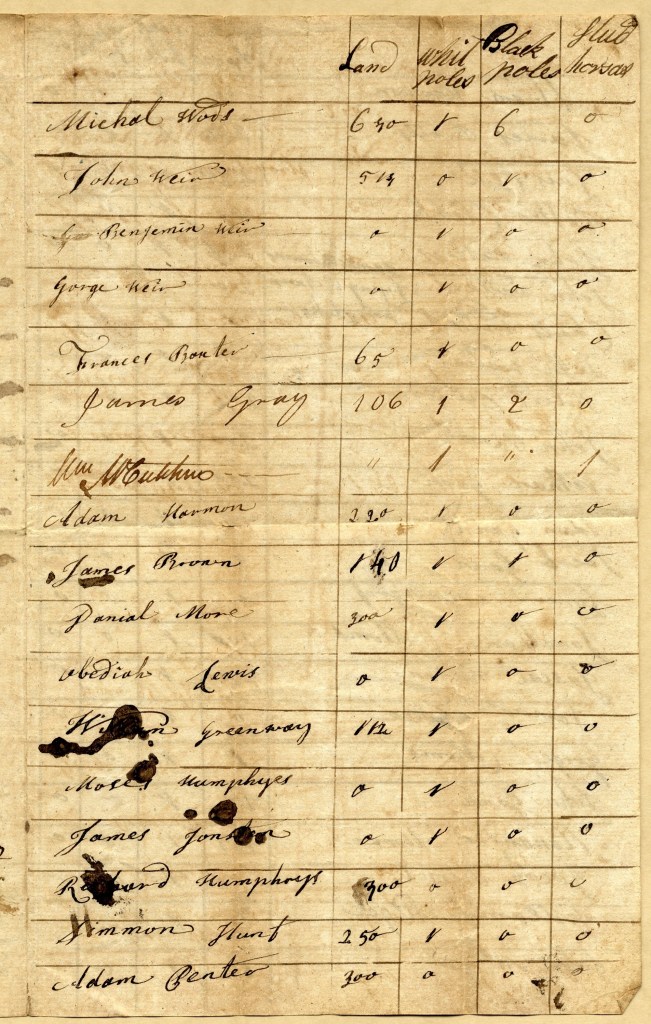 Land whit poles Black poles Stud horses
Michal Wods 630 1 6 0
John Weir 513 0 1 0
Benjemin Weir 0 1 0 0
Gorge Weir 0 1 0 0
Frances Baxter 65 1 0 0
James Gray 106 1 2 0
Wm " 1 " 1
Adam Harmon 220 1 0 0
James Brown 140 1 1 0
Danial More 300 1 0 0
Obediah Lewis 0 1 0 0
Greenway 112 1 0 0
Moses Humphyes 0 1 0 0
James 0 1 0 0
Humphreys 300 0 0 0
Simmon Hunt 250 1 0 0
Adam Penter 300 0 0 0